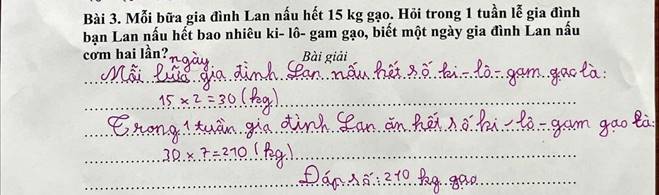 Bài 3. Mỗi bữa gia đình Lan nấu hết 15 kg gạo. Hỏi trong 1 tuần lễ gia đình
bạn Lan nấu hết bao nhiêu ki- lô- gam gạo, biết một ngày gia đình Lan nấu
cơm hai lần?
Bài giải
ngày
Mỗi bữa gia đình Lan nấu hết số ki-lô-gam gạo là:
15 × 2 = 30 (kg)
Trong 1 tuần gia đình Lan ăn hết số ki-lô-gam gạo là:
30 × 7 = 210 (kg)
Đáp số: 210 kg gạo